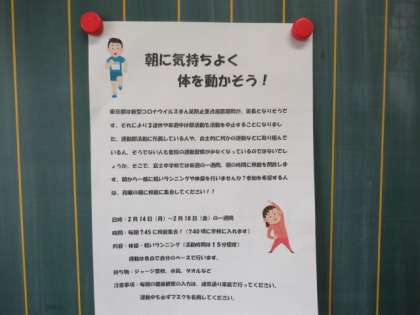 朝に気持ちよく
体を動かそう！
東京都は新型コロナウイルスまん延防止重点措置期間が、延長となりそうで
す。それにより3連休や
部活動も活動を中止することになりまし
た。運動部活動に所属している人や、自主的に何かの運動などに取り組んで
いる人、そうでない人も普段の運動習慣が少なくなっているのではないでし
ょうか。そこで、富士中学校では来週の一週間、朝の時間に校庭を開放しま
す。朝から一緒に軽いランニングや体操を行いませんか？参加を希望する人
は、月曜の朝に校庭に集合してください！！
日時：2月14日（月）～2月18日（金）の一週間
時間：毎朝7:45に校庭集合！（7:40頃に学校に入れます）
内容：体操・軽いランニング（活動時間は15分程度）
運動は各自で自分のペースで行います。
持ち物：ジャージ登校、水筒、タオルなど
注意事項：毎朝の健康観察の入力は、通常通り家庭で行ってください。
運動中も必ずマスクを着用してください。